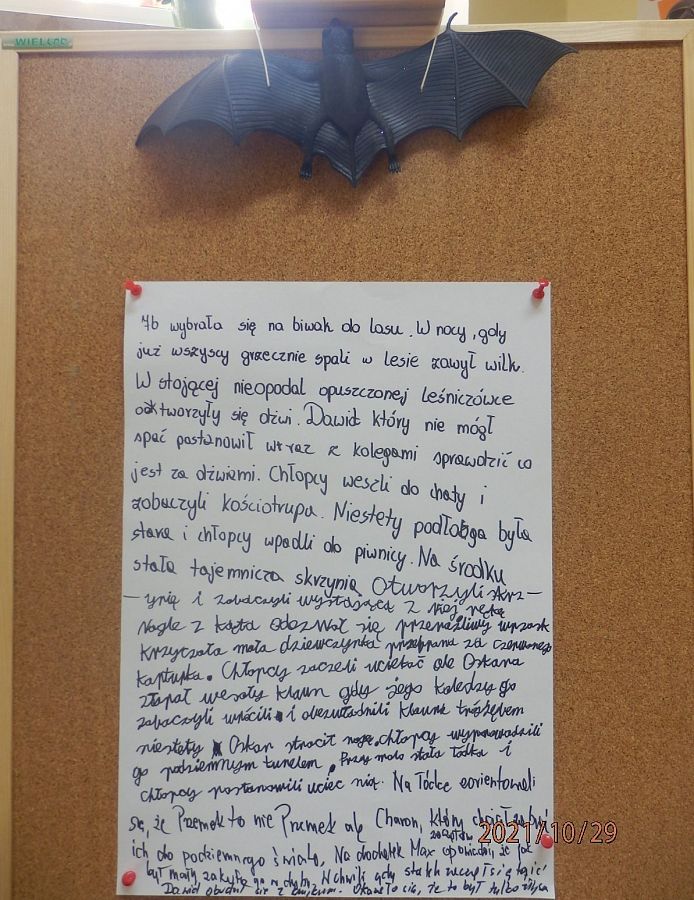 7b wybrała się na biwak do lasu. W nocy, gdy
już wszyscy grzecznie spali w lesie zawył wilk.
W stojącej nieopodal opuszczonej leśniczówce
odktworzyły się dźwi. Dawid który nie mógł
spać postanowił wraz z kolegami sprawdzić co
jest za dźwiami. Chłopcy weszli do chaty i
zobaczyli kościotrupa. Niestety podłoga była
stara i chłopcy wpadli do piwnicy. Na środku
stała tajemnicza skrzynia Otworzyli skrz-
-ynię i zobaczyli wystającą z niej rękę
Nagle z kąta odezwał się przeraźliwy wrzask
Krzyczała mała dziewczynka przebrana za czerwonego
kapturka. Chłopcy zaczeli uciekać ale Oskara
złapał wesoły klaun gdy jego koledzy go
zobaczyli wrócili i obezwładnili klauna trójzębem
niestety Oskar stracił nogę. chłopcy wyprowadzili
go podziemnym tunelem. Przy molo stała łódka i
chłopcy postanowili uciec nią. Na łódce zorientowali
się, że Przemek to nie Przemek ale Charon, który chciał zabrać
ich do podziemnego świata, Na dodatek Max opowiadał, że jak
był mały, W chwili gdy statek zaczął się
Dawid obudził się z Okazało się, że to był tylko
2021/10/29